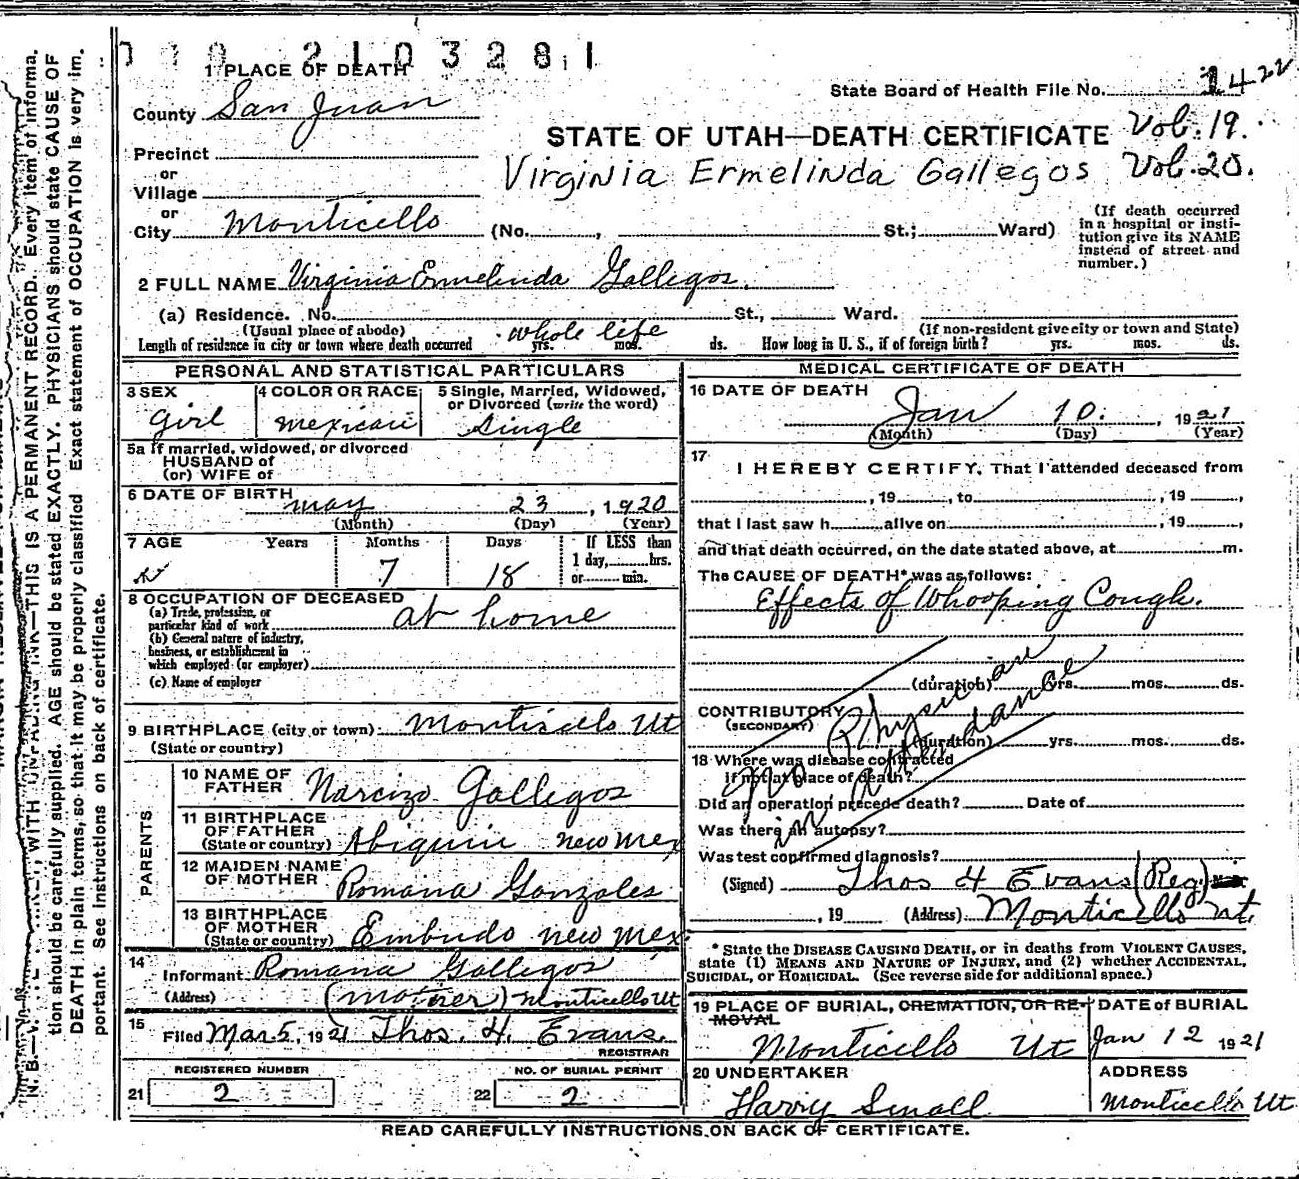 2103281
1 PLACE OF DEATH
State Board of Health File No. 1422
County San Juan
STATE OF UTAH—DEATH CERTIFICATE Vol. 19.
Precinct
Virginia Ermelinda Gallegos Vol. 20.
or
Village
or
City Monticello (No. , St.; Ward)
(If death occurred
in a hospital or insti-
tution give its NAME
instead of street and
number.)
2 FULL NAME Virginia Ermelinda Gallegos.
(a) Residence. No. St., Ward.
(Usual place of abode) (If non-resident give city or town and State)
Length of residence in city or town where death occurred whole life yrs. mos. ds. How long in U. S., if of foreign birth? yrs. mos. ds.
PERSONAL AND STATISTICAL PARTICULARS
3 SEX 4 COLOR OR RACE 5 Single, Married, Widowed,
or Divorced (write the word)
Girl mexican Single
5a If married, widowed, or divorced
HUSBAND of
(or) WIFE of
6 DATE OF BIRTH may 23, 1920
(Month) (Day) (Year)
7 AGE Years Months Days If LESS than
1 day, hrs.
7 18 or min.
8 OCCUPATION OF DECEASED
(a) Trade, profession, or
particular kind of work at home
(b) General nature of industry,
business, or establishment in
which employed (or employer)
(c) Name of employer
9 BIRTHPLACE (city or town) Monticello Ut
(State or country)
PARENTS
10 NAME OF
FATHER Narcizo Gallegos
11 BIRTHPLACE
OF FATHER
(State or country) Abiquiu new Mex
12 MAIDEN NAME
OF MOTHER Romana Gonzales
13 BIRTHPLACE
OF MOTHER
(State or country) Embudo new Mex.
14
Informant Romana Gallegos
(Address) (Mother) Monticello Ut
15
Filed Mar 5, 1921 Thos. H. Evans.
REGISTRAR
REGISTERED NUMBER NO. OF BURIAL PERMIT
21 2 22 2
MEDICAL CERTIFICATE OF DEATH
16 DATE OF DEATH
Jan 10. , 1921
(Month) (Day) (Year)
17
I HEREBY CERTIFY, That I attended deceased from
, 19 , to , 19 ,
that I last saw h alive on , 19 ,
and that death occurred, on the date stated above, at m.
The CAUSE OF DEATH* was as follows:
Effects of Whooping Cough.
(duration) yrs. mos. ds.
CONTRIBUTORY
(SECONDARY)
(duration) yrs. mos. ds.
No Physician
in attendance
18 Where was disease contracted
if not at place of death?
Did an operation precede death? Date of
Was there an autopsy?
Was test confirmed diagnosis?
(Signed) Thos H Evans (Reg)
, 19 (Address) Monticello Ut.
* State the DISEASE CAUSING DEATH, or in deaths from VIOLENT CAUSES,
state (1) MEANS AND NATURE OF INJURY, and (2) whether ACCIDENTAL,
SUICIDAL, or HOMICIDAL. (See reverse side for additional space.)
19 PLACE OF BURIAL, CREMATION, OR RE-
MOVAL
DATE of BURIAL
Monticello Ut Jan 12 1921
20 UNDERTAKER ADDRESS
Harry Small Monticello Ut
READ CAREFULLY INSTRUCTIONS ON BACK OF CERTIFICATE.
WITH UNFADING INK—THIS IS A PERMANENT RECORD. Every item of informa-
tion should be carefully supplied. AGE should be stated EXACTLY. PHYSICIANS should state CAUSE OF
DEATH in plain terms, so that it may be properly classified Exact statement of OCCUPATION is very im-
portant. See Instructions on back of certificate.